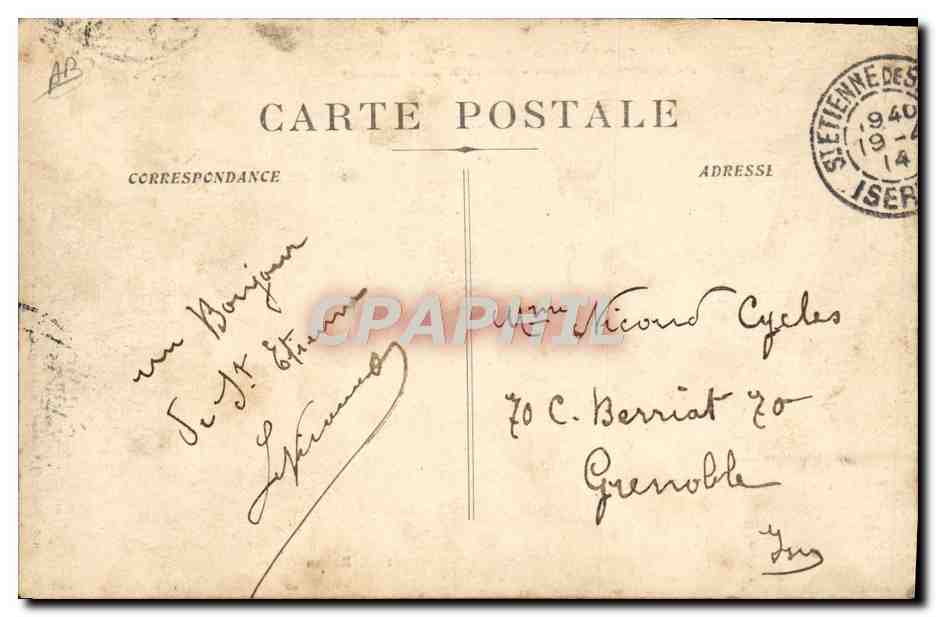 AB
CARTE POSTALE
CORRESPONDANCE
ADRESSE
ST ETIENNE DE S
1940
19 -4
14
ISER
un Bonjour
de St. Etienne
CPAPHIL
Mme Nicoud Cycles
70 C. Berriat 70
Grenoble